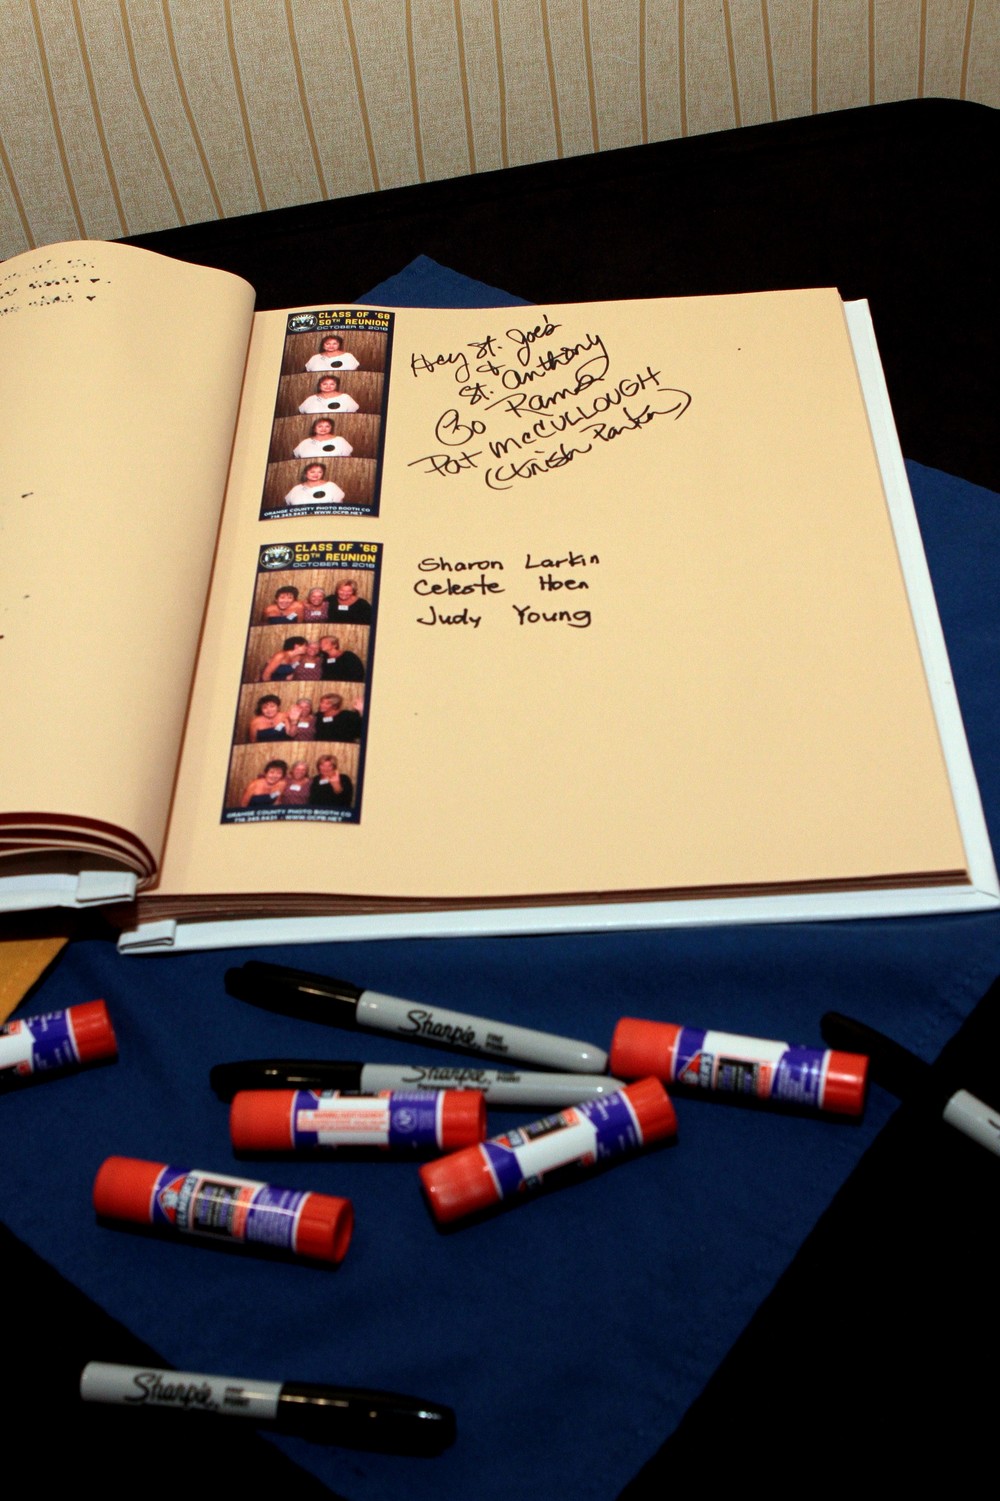 CLASS OF '68
50TH REUNION
OCTOBER 5, 2018
ORANGE COUNTY PHOTO BOOTH CO
714.345.9431 - WWW.OCPB.NET
Hey St. Joe's
&
St. Anthony
Go Rams
Pat McCULLOUGH
CLASS OF '68
50TH REUNION
OCTOBER 5, 2018
ORANGE COUNTY PHOTO BOOTH CO
714.345.9431 - WWW.OCPB.NET
Sharon Larkin
Celeste Hoen
Judy Young
Sharpie FINE POINT
Sharpie
ELMER'S
ELMER'S
Sharpie FINE POINT